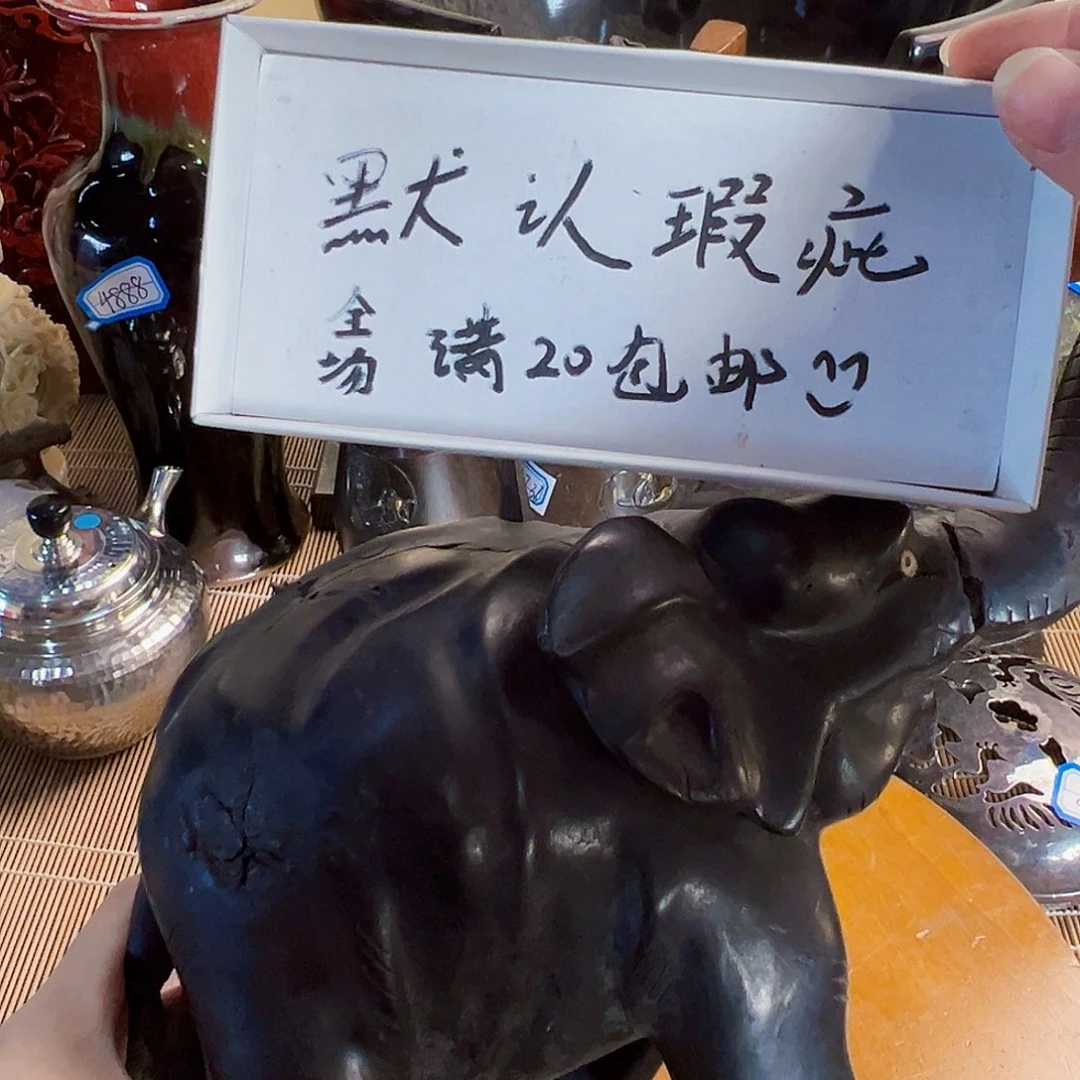 默认瑕疵
全场满20包邮
4888